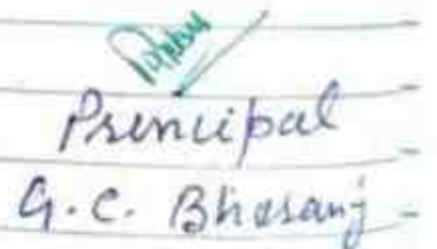 Principal
G.C. Bhesanj